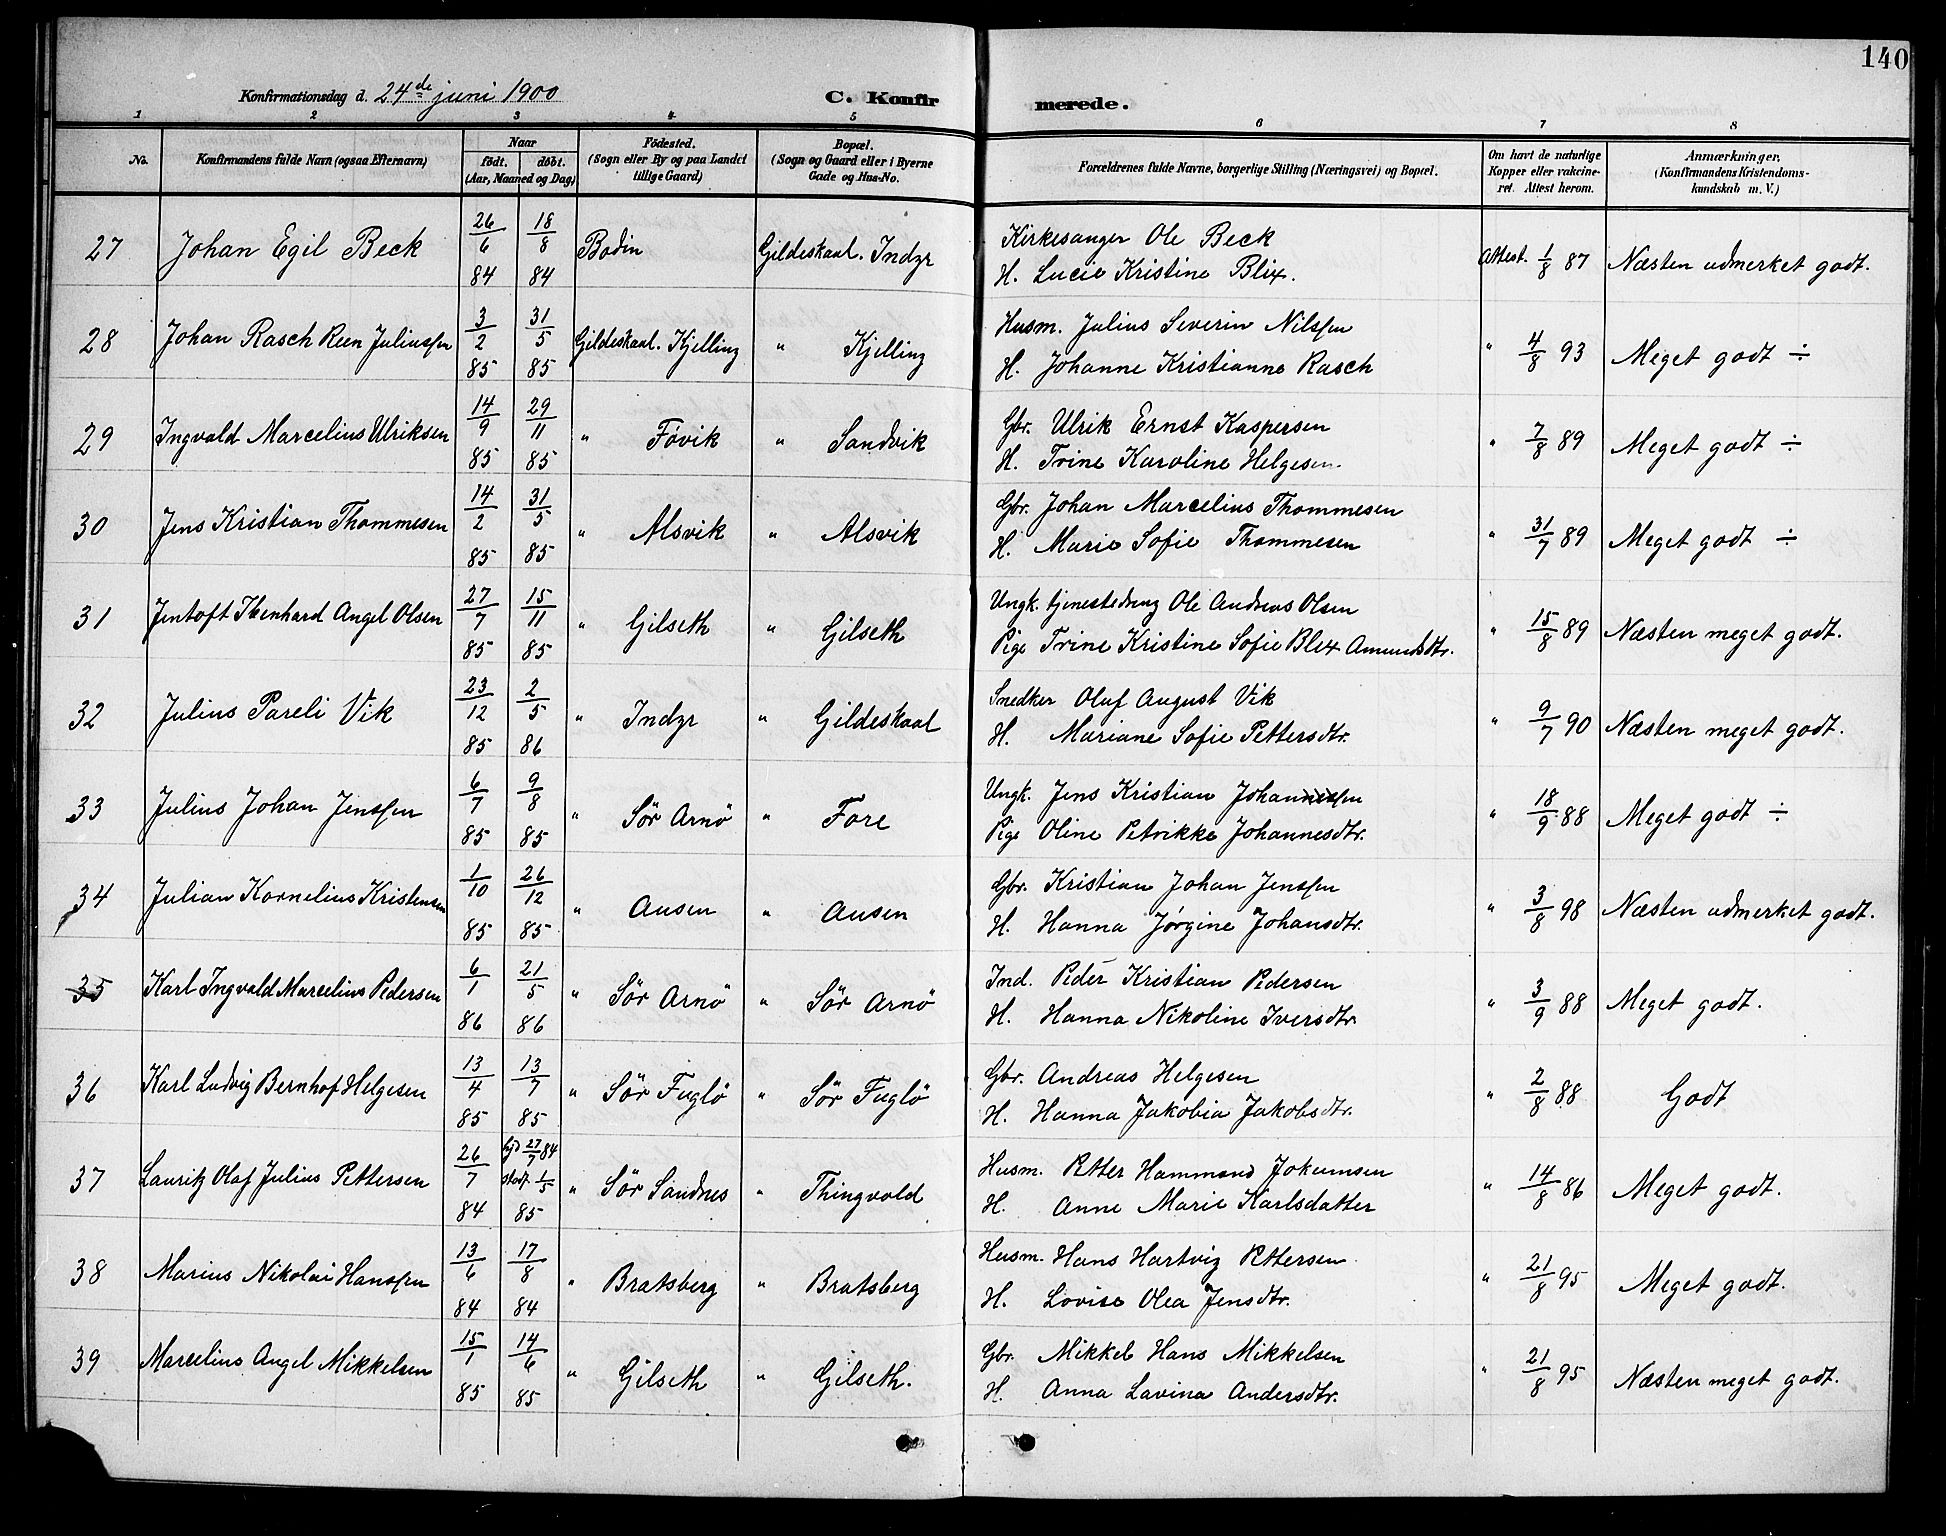 140
Konfirmationsdag d. 24de juni 1900 C. Konfirmerede.
1 2 3 4 5 6 7 8
No. Konfirmandens fulde Navn (ogsaa Efternavn) Naar födt. döbt. (Aar, Maaned og Dag) Födested. (Sogn eller By og paa Landet tillige Gaard) Bopæl. (Sogn og Gaard eller i Byerne Gade og Hus-No. Forældrenes fulde Navne, borgerlige Stilling (Næringsvei) og Bopæl. Om havt de naturlige Kopper eller vakcineret. Attest herom. Anmærkninger. (Konfirmandens Kristendomskundskab m. V.)
27 Johan Egil Beck 26/6 84 18/8 84 Bodin Gildeskaal. Indyr Kirkesanger Ole Beck
H. Lucie Kristine Blix. Attest. 1/8 87 Næsten udmerket godt.
28 Johan Rasch Reen Juliussen 3/2 85 31/5 85 Gildeskaal. Kjelling " Kjelling Husm. Julius Severin Nilssen
H. Johanne Kristianne Rasch " 4/8 93 Meget godt ÷
29 Ingvald Marcelius Ulriksen 14/9 85 29/11 85 " Fövik " Sandvik Gbr. Ulrik Ernst Kaspersen
H. Trine Karoline Helgesen. " 7/8 89 Meget godt ÷
30 Jens Kristian Thommesen 14/2 85 31/5 85 " Alsvik " Alsvik Gbr. Johan Marcelius Thommesen
H. Marie Sofie Thommesen " 31/7 89 Meget godt ÷
31 Jentoft Ibenhard Angel Olsen 27/7 85 15/11 85 " Gilseth " Gilseth Ungk. tjenestedreng Ole Andreas Olsen
Pige Trine Kristine Sofie Blix Amundsdtr. " 15/8 89 Næsten meget godt.
32 Julius Pareli Vik 23/12 85 2/5 86 " Indyr " Gildeskaal Snedker Oluf August Vik
H. Mariane Sofie Pettersdtr. " 9/7 90 Næsten meget godt.
33 Julius Johan Jenssen 6/7 85 9/8 85 " Sör Arnö " Fore Ungk. Jens Kristian Johannessen
Pige Oline Petrikke Johannesdtr. " 18/9 88 Meget godt ÷
34 Julian Kornelius Kristensen 1/10 85 26/12 85 " Ausen " Ausen Gbr. Kristian Johan Jenssen
H. Hanna Jørgine Johansdtr. " 3/8 98 Næsten udmerket godt.
35 Karl Ingvald Marcelius Pedersen 6/1 86 21/5 86 " Sör Arnö " Sör Arnö Ind. Peder Kristian Pedersen
H. Hanna Nikoline Iversdtr. " 3/9 88 Meget godt.
36 Karl Ludvig Bernhof Helgesen 13/4 85 13/7 85 " Sör Fuglö " Sör Fuglö Gbr. Andreas Helgesen
H. Hanna Jakobia Jakobsdtr. " 2/8 88 Godt
37 Lauritz Olaf Julius Pettersen 26/7 84 hjd 27/7 84 stadf. 1/5 85 " Sör Sandnes " Thingvold Husm. Petter Hammond Jokumsen
H. Anne Marie Karlsdatter " 14/8 86 Meget godt.
38 Marius Nikolai Hanssen 13/6 84 17/8 84 " Bratsberg " Bratsberg Husm. Hans Hartvig Pettersen
H. Lovise Olea Jensdtr. " 21/8 95 Meget godt.
39 Marcelius Angel Mikkelsen 15/1 85 14/6 85 " Gilseth " Gilseth. Gbr. Mikkel Hans Mikkelsen
H. Anna Lavina Andersdtr. " 21/8 95 Næsten meget godt.